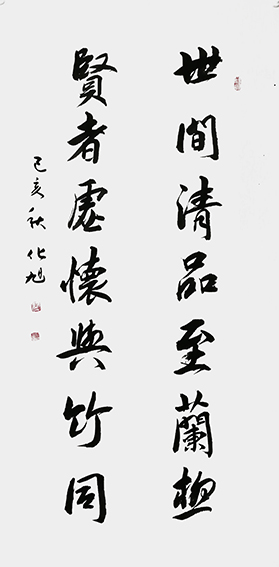 世間清品至蘭極
賢者虛懷與竹同
己亥秋化旭